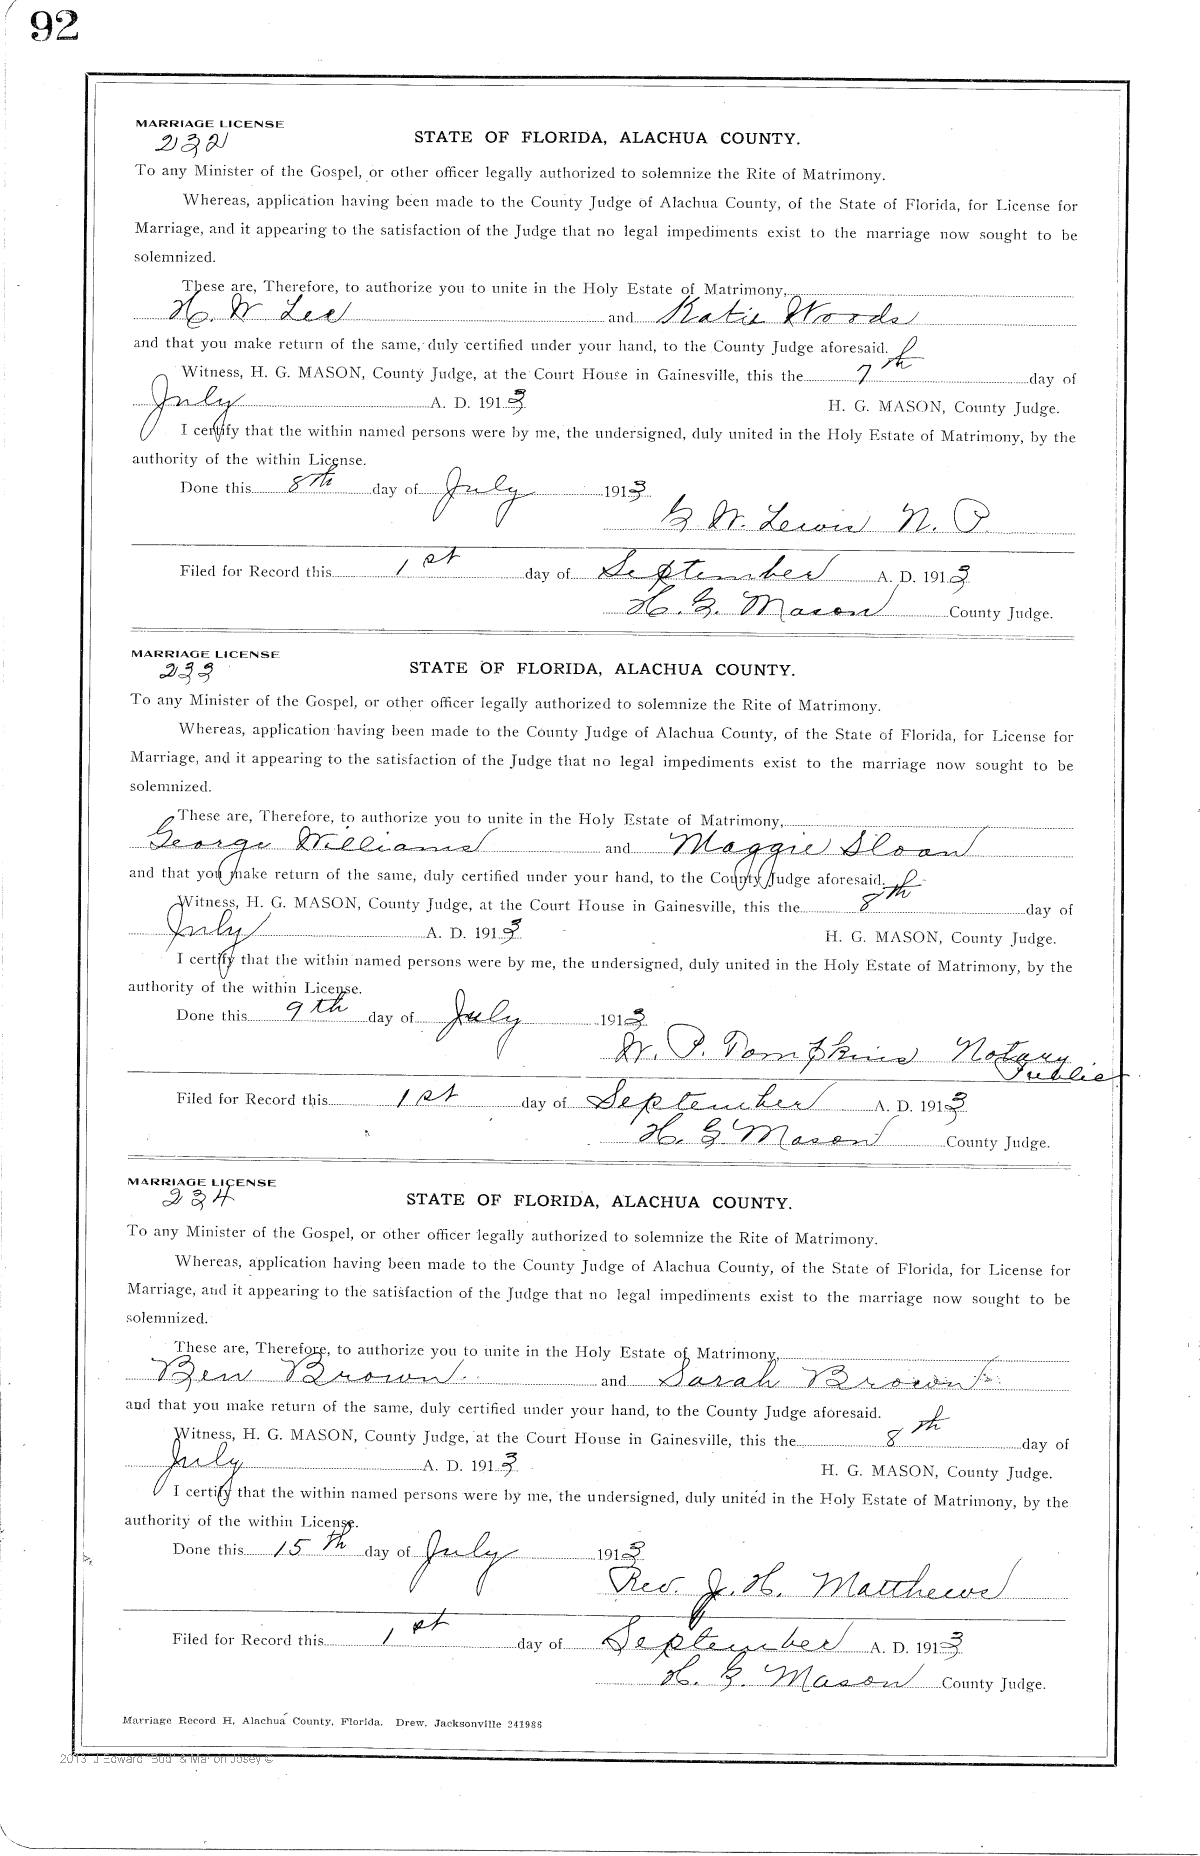 92
MARRIAGE LICENSE
232
STATE OF FLORIDA, ALACHUA COUNTY.
To any Minister of the Gospel, or other officer legally authorized to solemnize the Rite of Matrimony.
Whereas, application having been made to the County Judge of Alachua County, of the State of Florida, for License for
Marriage, and it appearing to the satisfaction of the Judge that no legal impediments exist to the marriage now sought to be
solemnized.
These are, Therefore, to authorize you to unite in the Holy Estate of Matrimony,
H. W Lee and Katie Woods
and that you make return of the same, duly certified under your hand, to the County Judge aforesaid.
Witness, H. G. MASON, County Judge, at the Court House in Gainesville, this the 7th day of
July A. D. 1913 H. G. MASON, County Judge.
I certify that the within named persons were by me, the undersigned, duly united in the Holy Estate of Matrimony, by the
authority of the within License.
Done this 8th day of July 1913
G W. Lewis N. P.
Filed for Record this 1st day of September A. D. 1913
H. G. Mason County Judge.
MARRIAGE LICENSE
233
STATE OF FLORIDA, ALACHUA COUNTY.
To any Minister of the Gospel, or other officer legally authorized to solemnize the Rite of Matrimony.
Whereas, application having been made to the County Judge of Alachua County, of the State of Florida, for License for
Marriage, and it appearing to the satisfaction of the Judge that no legal impediments exist to the marriage now sought to be
solemnized.
These are, Therefore, to authorize you to unite in the Holy Estate of Matrimony,
George Williams and Maggie Sloan
and that you make return of the same, duly certified under your hand, to the County Judge aforesaid.
Witness, H. G. MASON, County Judge, at the Court House in Gainesville, this the 8th day of
July A. D. 1913 H. G. MASON, County Judge.
I certify that the within named persons were by me, the undersigned, duly united in the Holy Estate of Matrimony, by the
authority of the within License.
Done this 9th day of July 1913
W. P. Tompkins Notary
Public
Filed for Record this 1st day of September A. D. 1913
H. G Mason County Judge.
MARRIAGE LICENSE
234
STATE OF FLORIDA, ALACHUA COUNTY.
To any Minister of the Gospel, or other officer legally authorized to solemnize the Rite of Matrimony.
Whereas, application having been made to the County Judge of Alachua County, of the State of Florida, for License for
Marriage, and it appearing to the satisfaction of the Judge that no legal impediments exist to the marriage now sought to be
solemnized.
These are, Therefore, to authorize you to unite in the Holy Estate of Matrimony,
Ben Brown and Sarah Brown
and that you make return of the same, duly certified under your hand, to the County Judge aforesaid.
Witness, H. G. MASON, County Judge, at the Court House in Gainesville, this the 8th day of
July A. D. 1913 H. G. MASON, County Judge.
I certify that the within named persons were by me, the undersigned, duly united in the Holy Estate of Matrimony, by the
authority of the within License.
Done this 15th day of July 1913
Rev. J. H. Matthews
Filed for Record this 1st day of September A. D. 1913
H. G. Mason County Judge.
Marriage Record H, Alachua County, Florida. Drew, Jacksonville 241986
2013 J Edward "Bud" & Marion Josey ©